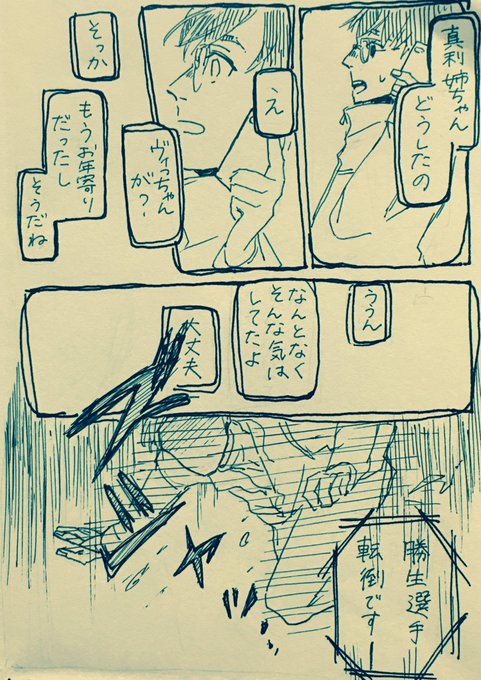 真利姉ちゃん
どうしたの
え
ヴィっちゃん
が?
そっか
もうお年寄り
だったし
そうだね
ううん
なんとなく
そんな気は
してたよ
大丈夫
勝生選手
転倒です─